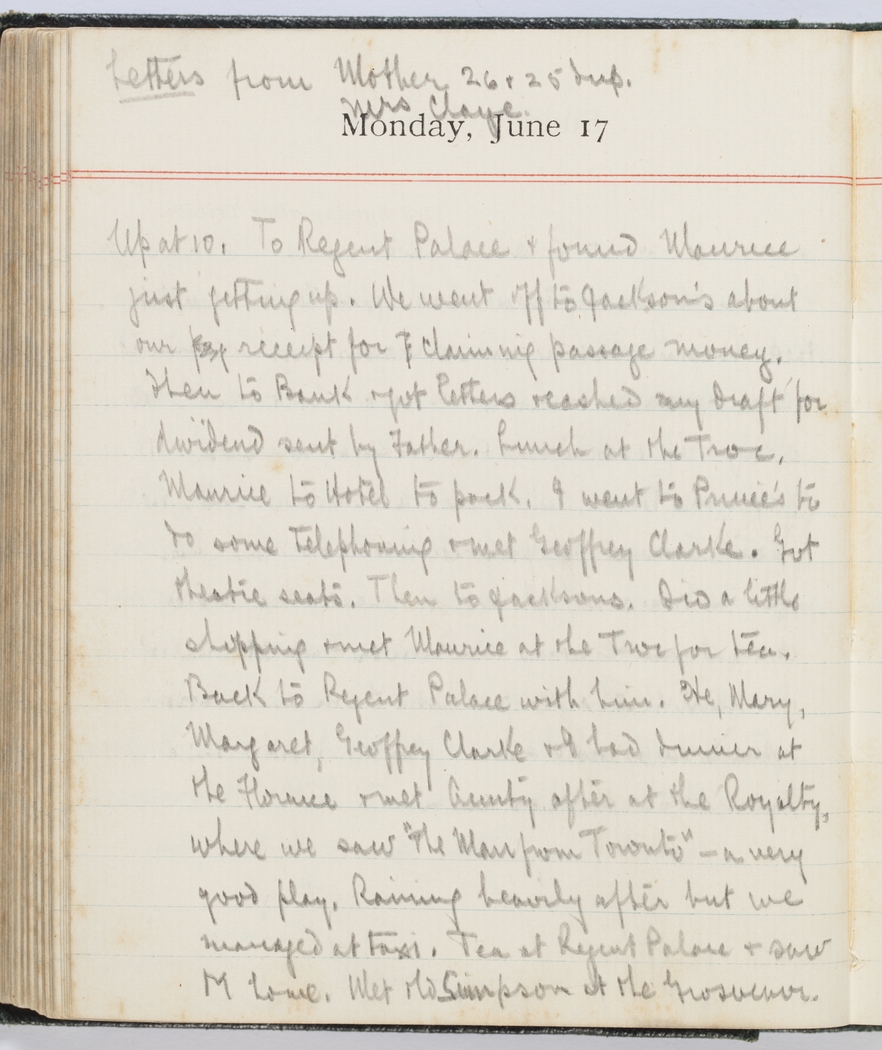 Letters from Mother 26 & 25 dup.
Mrs Claye.
Monday, June 17
Up at 10. To Regent Palace & found Maurice
just getting up. We went off to Jackson's about
our receipt for claiming passage money.
Then to Bank & got letters & cashed my draft for
dividend sent by Father. Lunch at the Troc.
Maurice to Hotel to pack. I went to Prince's to
do some telephoning & met Geoffrey Clarke. Got
theatre seats. Then to Jacksons. Did a little
shopping & met Maurice at the Troc for tea.
Back to Regent Palace with him. He, Mary,
Margaret, Geoffrey Clarke & I had dinner at
the Florence & met Aunty after at the Royalty,
where we saw "The Man from Toronto" – a very
good play. Raining heavily after but we
managed at taxi. Tea at Regent Palace & saw
M home. Met old Simpson at the Grosvenor.